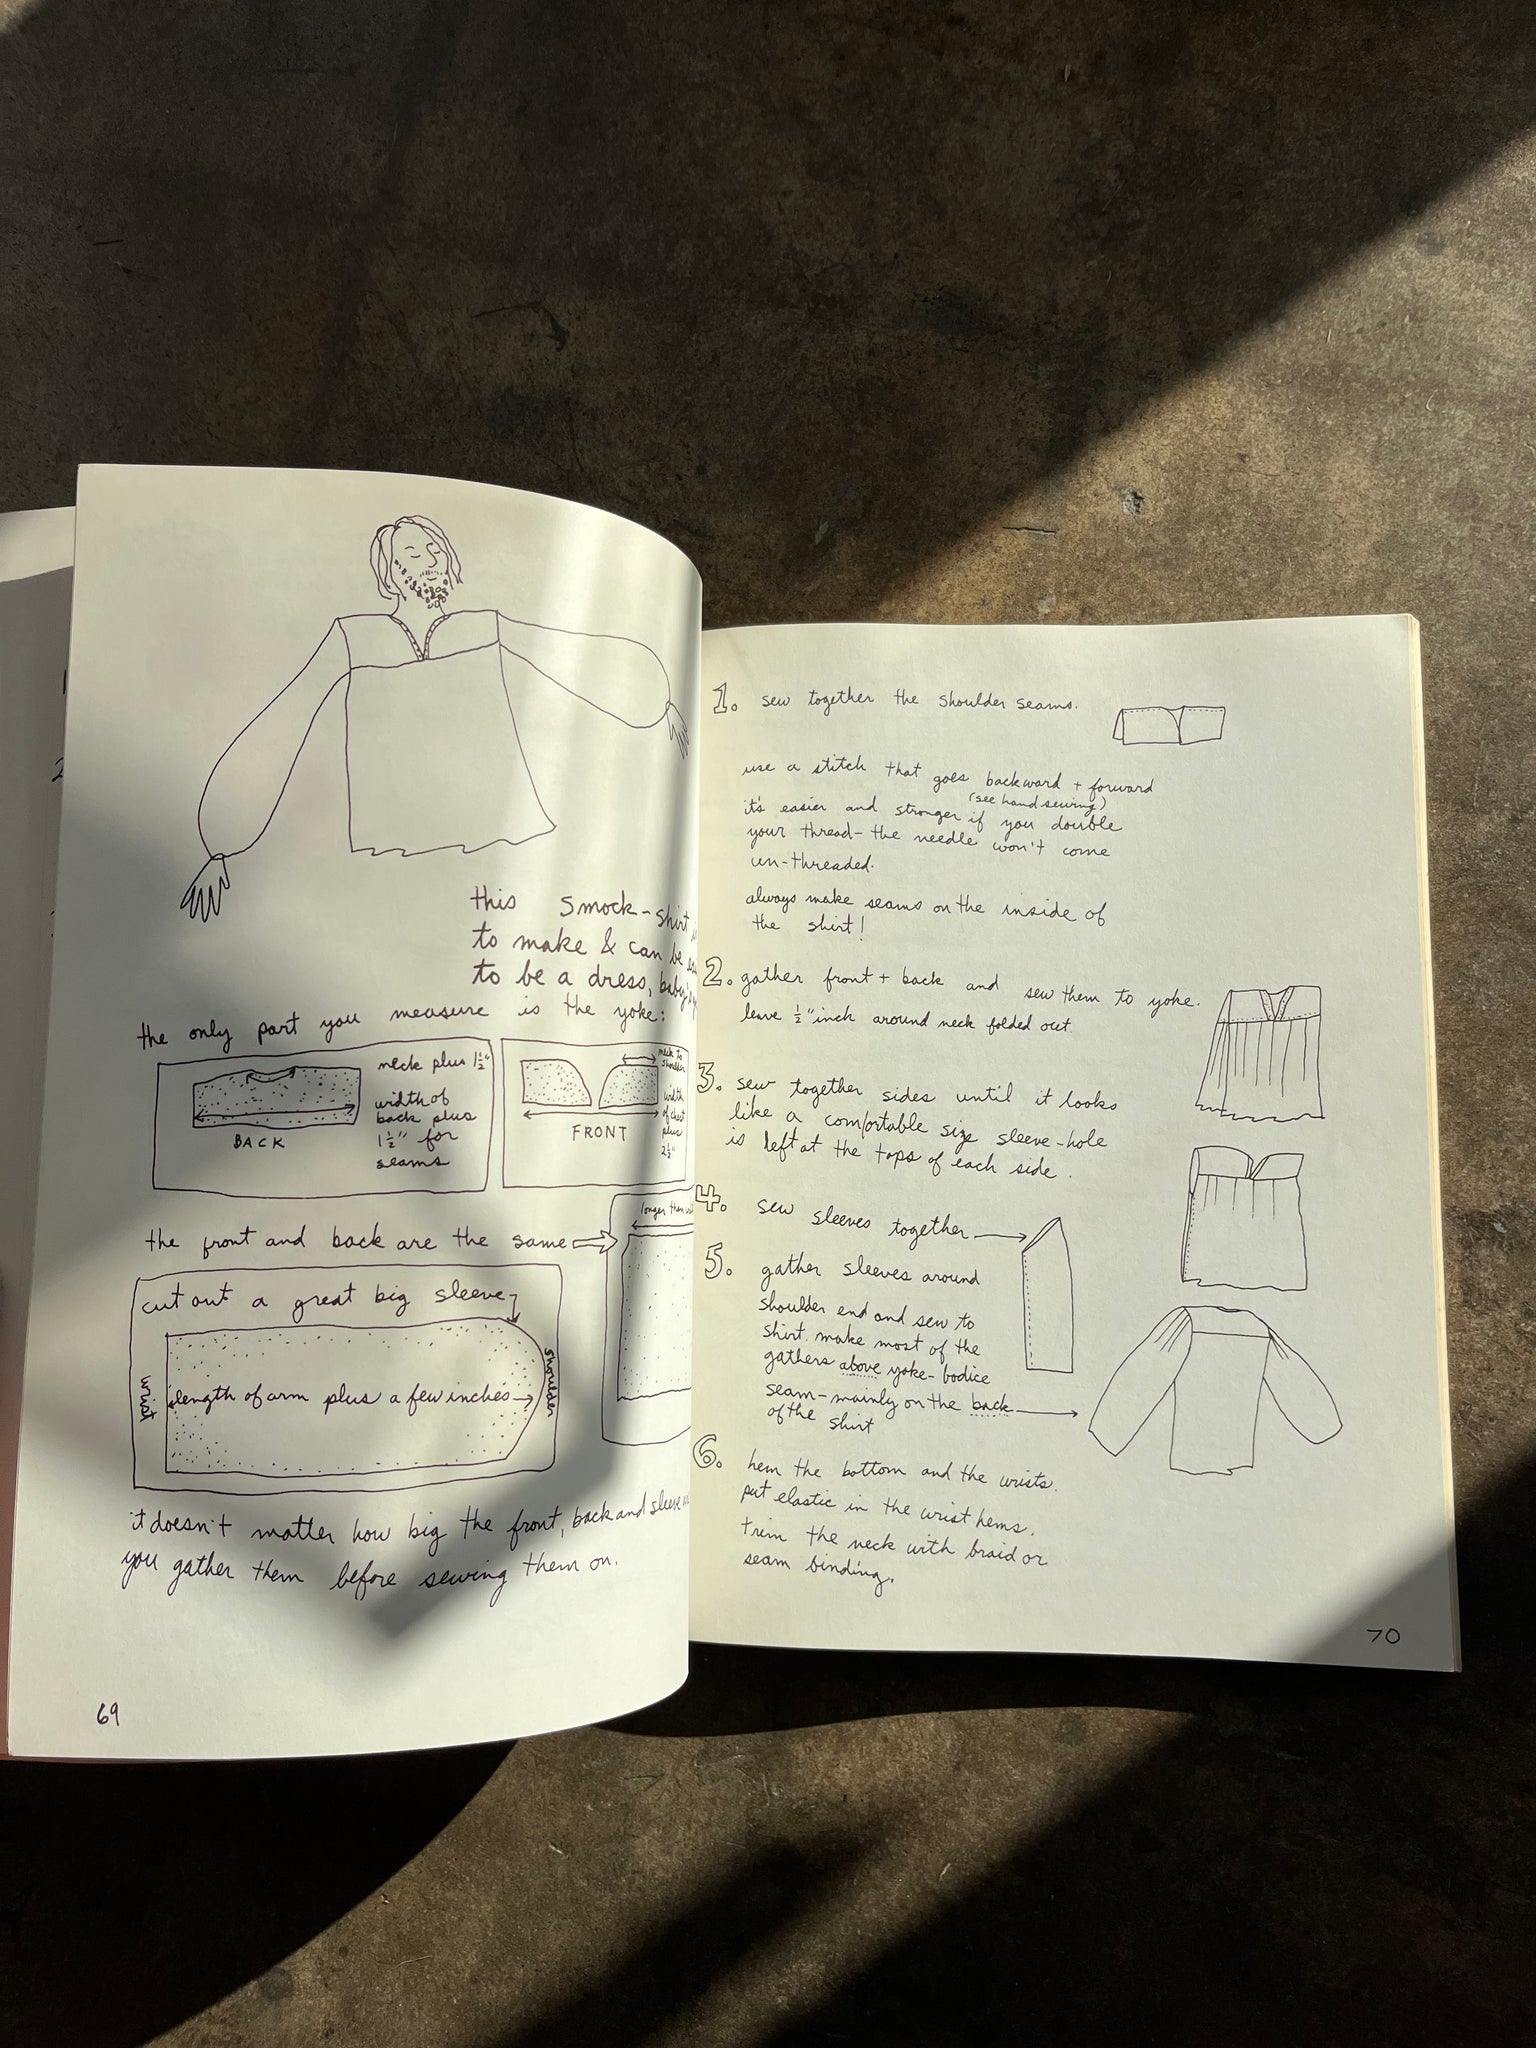 this smock-shirt
to make & can be
to be a dress, baby's
the only part you measure is the yoke:
neck plus 1½"
width of
back plus
1½" for
seams
BACK
neck to
shoulder
width
of chest
plus
2½"
FRONT
the front and back are the same
longer than
cut out a great big sleeve
wrist
length of arm plus a few inches
shoulder
it doesn't matter how big the front, back and sleeve
you gather them before sewing them on.
69
1. sew together the shoulder seams.
use a stitch that goes backward + forward
(see hand sewing)
it's easier and stronger if you double
your thread - the needle won't come
un-threaded.
always make seams on the inside of
the shirt!
2. gather front + back and sew them to yoke.
leave ½" inch around neck folded out.
3. sew together sides until it looks
like a comfortable size sleeve-hole
is left at the tops of each side.
4. sew sleeves together
5. gather sleeves around
shoulder end and sew to
shirt. make most of the
gathers above yoke-bodice
seam - mainly on the back
of the shirt
6. hem the bottom and the wrists.
put elastic in the wrist hems.
trim the neck with braid or
seam binding.
70